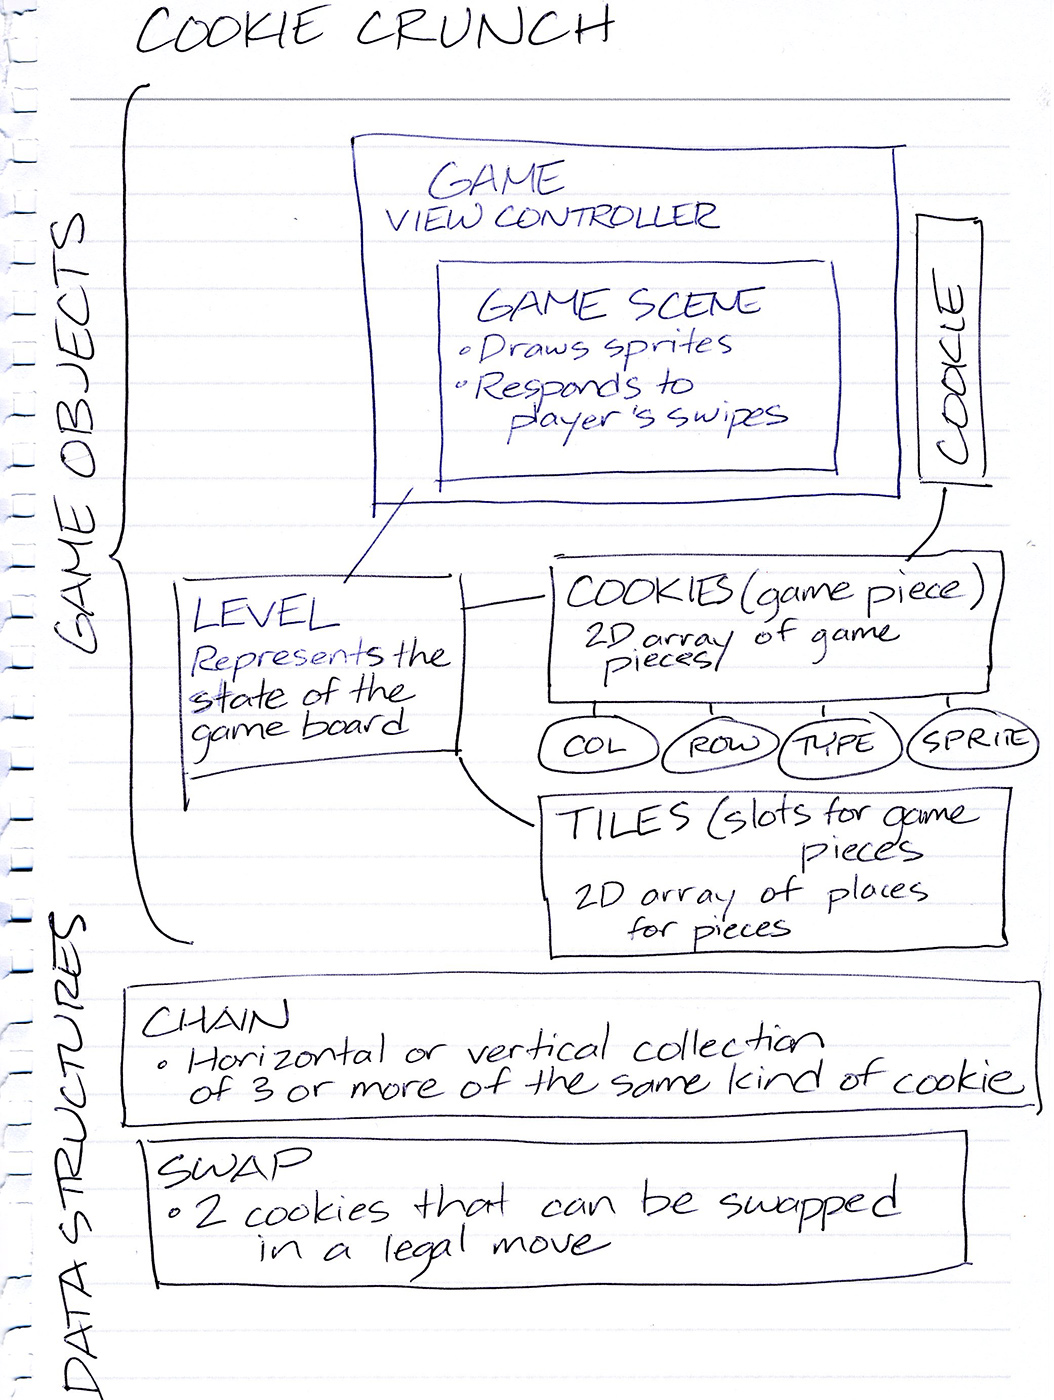 COOKIE CRUNCH
GAME OBJECTS
GAME
VIEW CONTROLLER
GAME SCENE
• Draws sprites
• Responds to
player's swipes
COOKIE
LEVEL
Represents the
state of the
game board
COOKIES (game piece)
2D array of game
pieces
COL
ROW
TYPE
SPRITE
TILES (slots for game
pieces
2D array of places
for pieces
DATA STRUCTURES
CHAIN
• Horizontal or vertical collection
of 3 or more of the same kind of cookie
SWAP
• 2 cookies that can be swapped
in a legal move